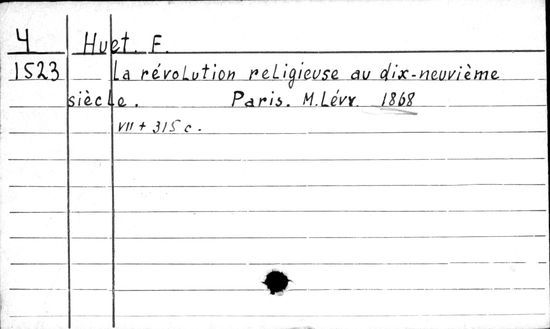 Ч Huet. F.
1523 La révolution religieuse au dix-neuvième
siècle. Paris. M.Lévy. 1868
VII + 315 c.